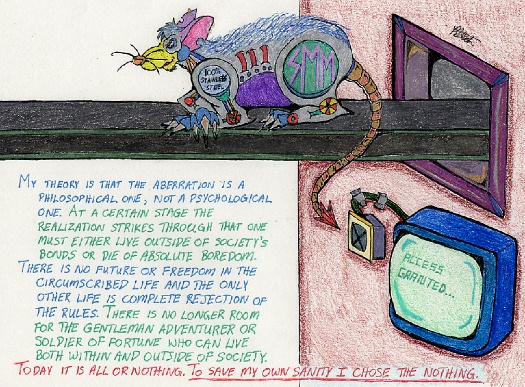 100%
STAINLESS
STEEL
SMM
ACCESS
GRANTED...
MY THEORY IS THAT THE ABERRATION IS A
PHILOSOPHICAL ONE, NOT A PSYCHOLOGICAL
ONE. AT A CERTAIN STAGE THE
REALIZATION STRIKES THROUGH THAT ONE
MUST EITHER LIVE OUTSIDE OF SOCIETY'S
BONDS OR DIE OF ABSOLUTE BOREDOM.
THERE IS NO FUTURE OR FREEDOM IN THE
CIRCUMSCRIBED LIFE AND THE ONLY
OTHER LIFE IS COMPLETE REJECTION OF
THE RULES. THERE IS NO LONGER ROOM
FOR THE GENTLEMAN ADVENTURER OR
SOLDIER OF FORTUNE WHO CAN LIVE
BOTH WITHIN AND OUTSIDE OF SOCIETY.
TODAY IT IS ALL OR NOTHING. TO SAVE MY OWN SANITY I CHOSE THE NOTHING.